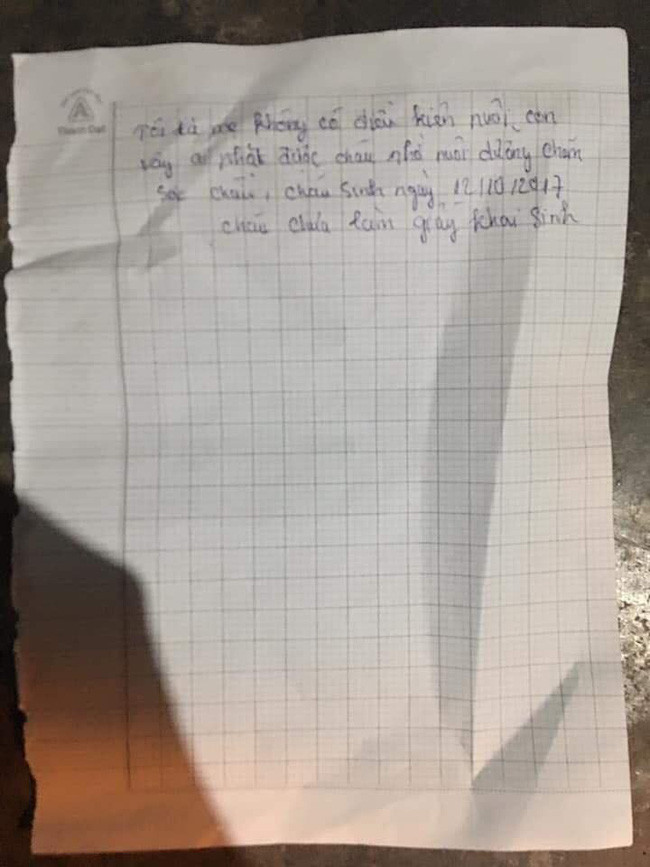 Thành Đạt
Tôi là mẹ không có điều kiện nuôi con
vậy ai nhặt được cháu nhờ nuôi dưỡng chăm
sóc cháu, cháu sinh ngày 12/10/2017
cháu chưa làm giấy khai sinh